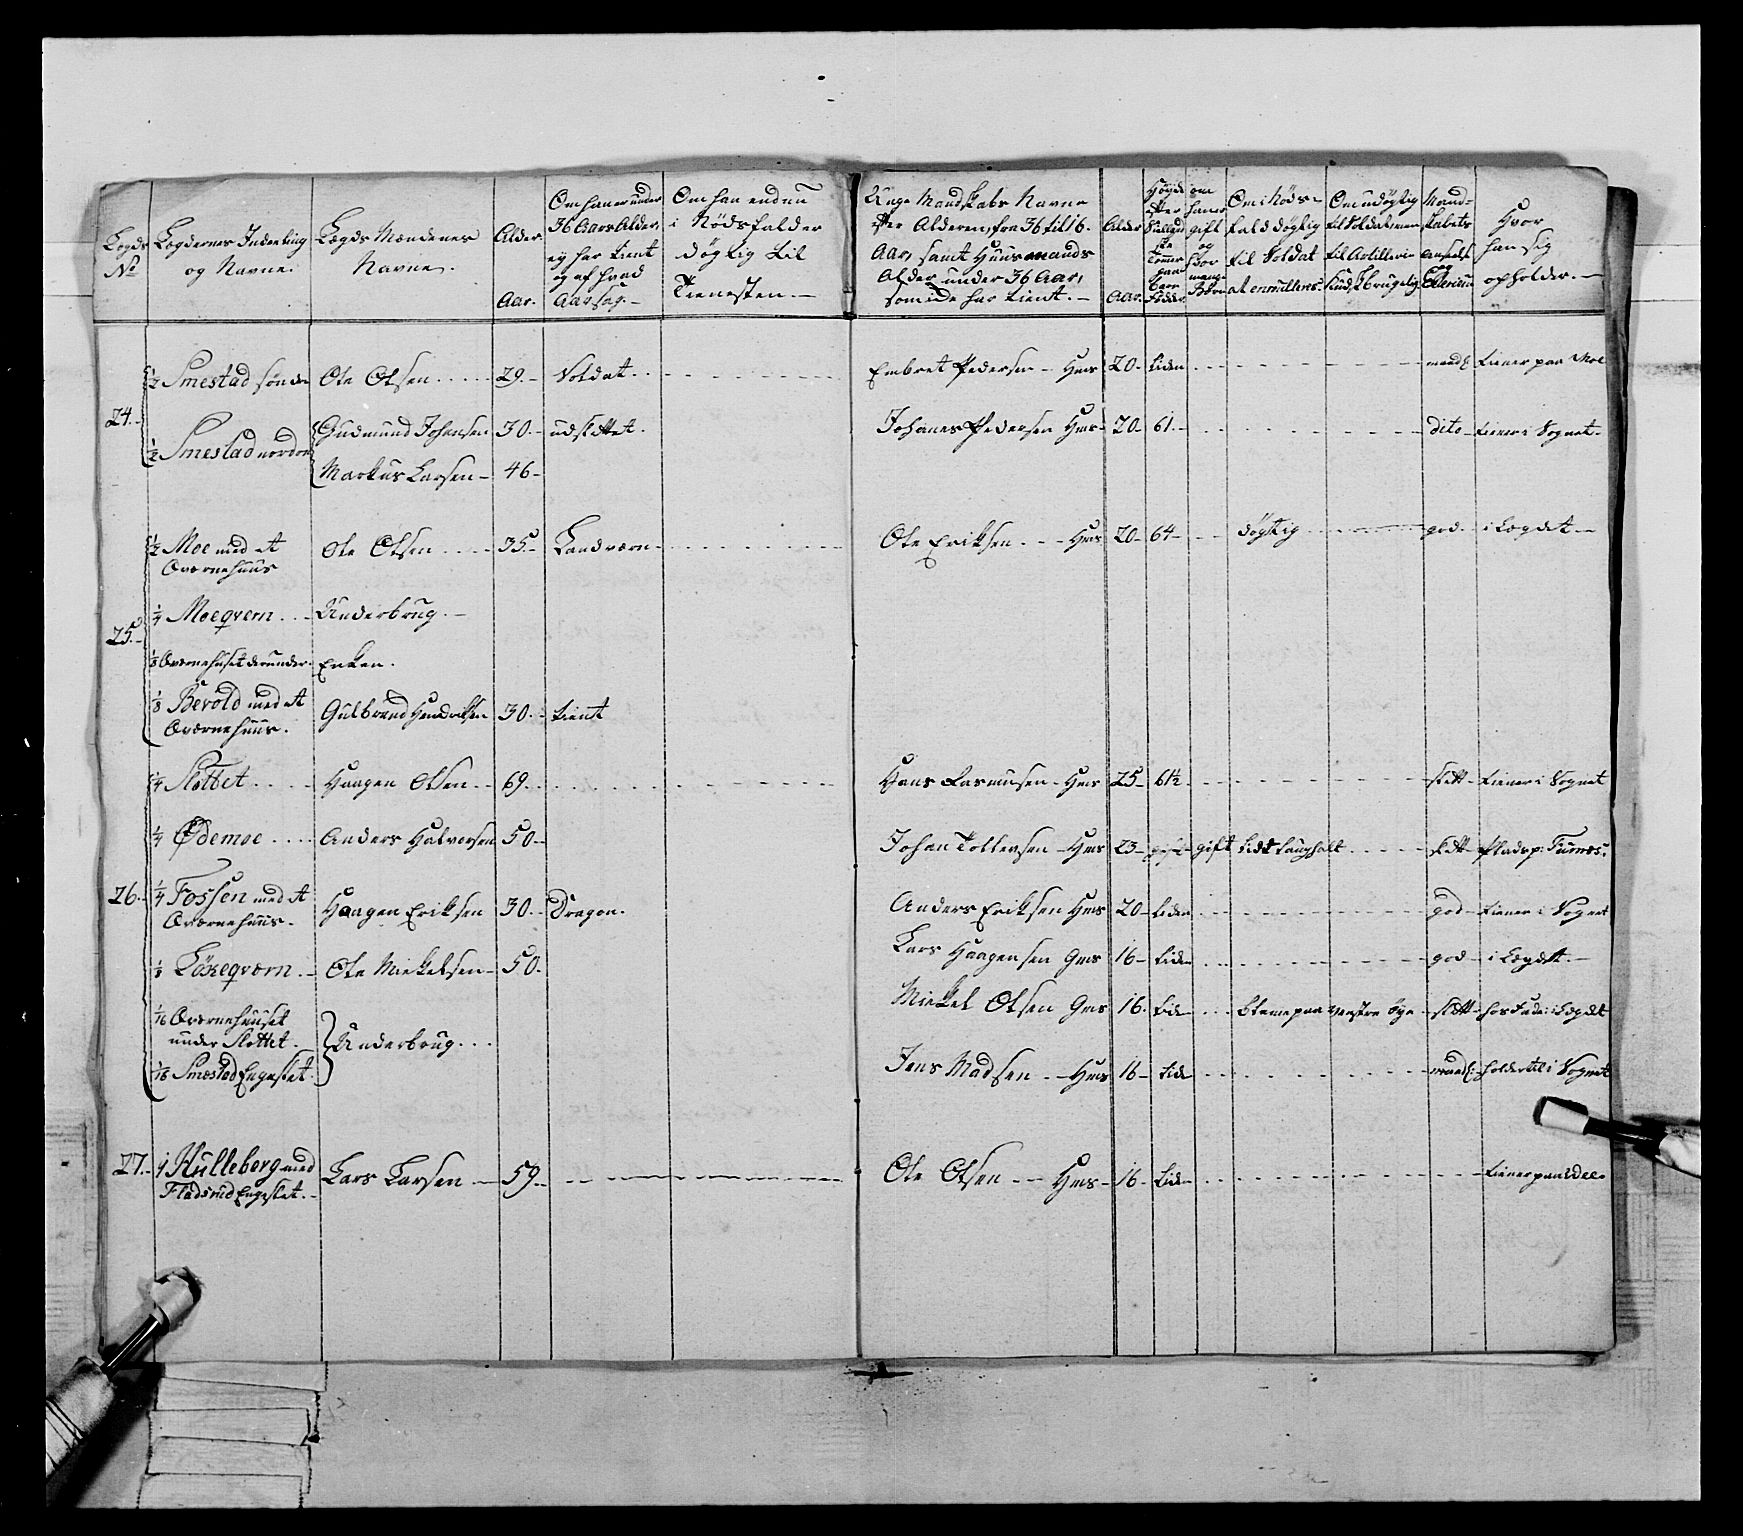 Lægds No
Lægdernes Indeeling og Navne.
Lægds Mændenes Navne.
Alder Aar.
Om han er under 36 Aars Alder, ey har tient og af hvad Aarsag.-
Om han endnu i Nødsfalder døgtig til Tienesten.-
Unge Mandskabs Navne efter Alderen, fra 36 til 16 Aar, samt Huusmænds Alder under 36 Aar, som ide har tient.-
Alder Aar.
Høyde efter Siællandske Tommer paa Bare Fødder
om han er gift og hvor mange Børn
Om i Nødsfald døgtig til Soldat at enrulleris
Om udøgtig til Soldat, men til Artillerie Kudsk brugelig
Mandskabets Anseelse og
Hvor han sig opholder.-
24.- ½ Smestad søndre Ole Olsen..... 29.- Soldat. Embret Pedersen - Hms 20- liden maadl. tiener paa Moe
½ Smestad nordre Gudmund Johansen 30.- udslettet. Johanes Pedersen Hms- 20- 61.- dito- tiener i Sognet.
Markus Larsen - 46-
25.- ½ Moe med et Qværnehuus Ole Olsen..... 35.- Landværn- Ole Eriksen - Hms 20- 64- døgtig god. i Lægdet-
¼ Moeqvern... Underbrug.-
⅛ Qværnehuset derunder. Enken.
⅛ Berold med et Qværnehuus. Gulbrand Hendriksen 30.- tient
26.- ¼ Slottet.... Haagen Olsen.. 69. Hans Rasmusen - Hms 25- 61½ slett- tiener i Sognet
¼ Ødemoe.... Anders Halvorsen 50- Johan Tollevsen - Hms 23- gift lidt laughalt slett- Pladsp: Furnes:
¼ Fossen med et Qværnehuus. Haagen Eriksen 30.- Dragon. Anders Eriksen Hms 20- liden god- tiener i Sognet
⅛ Lökeqværn.- Ole Mikkelsen- 50. Lars Haagensen Gms 16- liden god- i Lægdet.-
1/16 Qværnehuuset under Slottet. Underbrug... Mikkel Olsen Gms 16. liden blemme paa venstre Øye slett- hos Fader i Lægdet
1/16 Smestad Engeslet. Jens Madsen - Hms 16- lide maadl: holder til i Sognet
27.- 1/1 Kulleberg med Fladsrud Engeslet.- Lars Larsen - 59.- Ole Olsen - Hms- 16- lide tiener paa